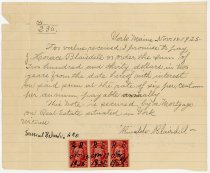 230.
York Maine Nov. 18 1925-
For value received, I promise to pay
Horace Blaisdell or order the sum of
Two hundred and thirty dollars in two
years from the date hereof with interest
to be paid semi at the rate of six per centum
per annum payable annually
This note is secured by a Mortgage
on Real Estate situated in York
Witness
Blaisdell